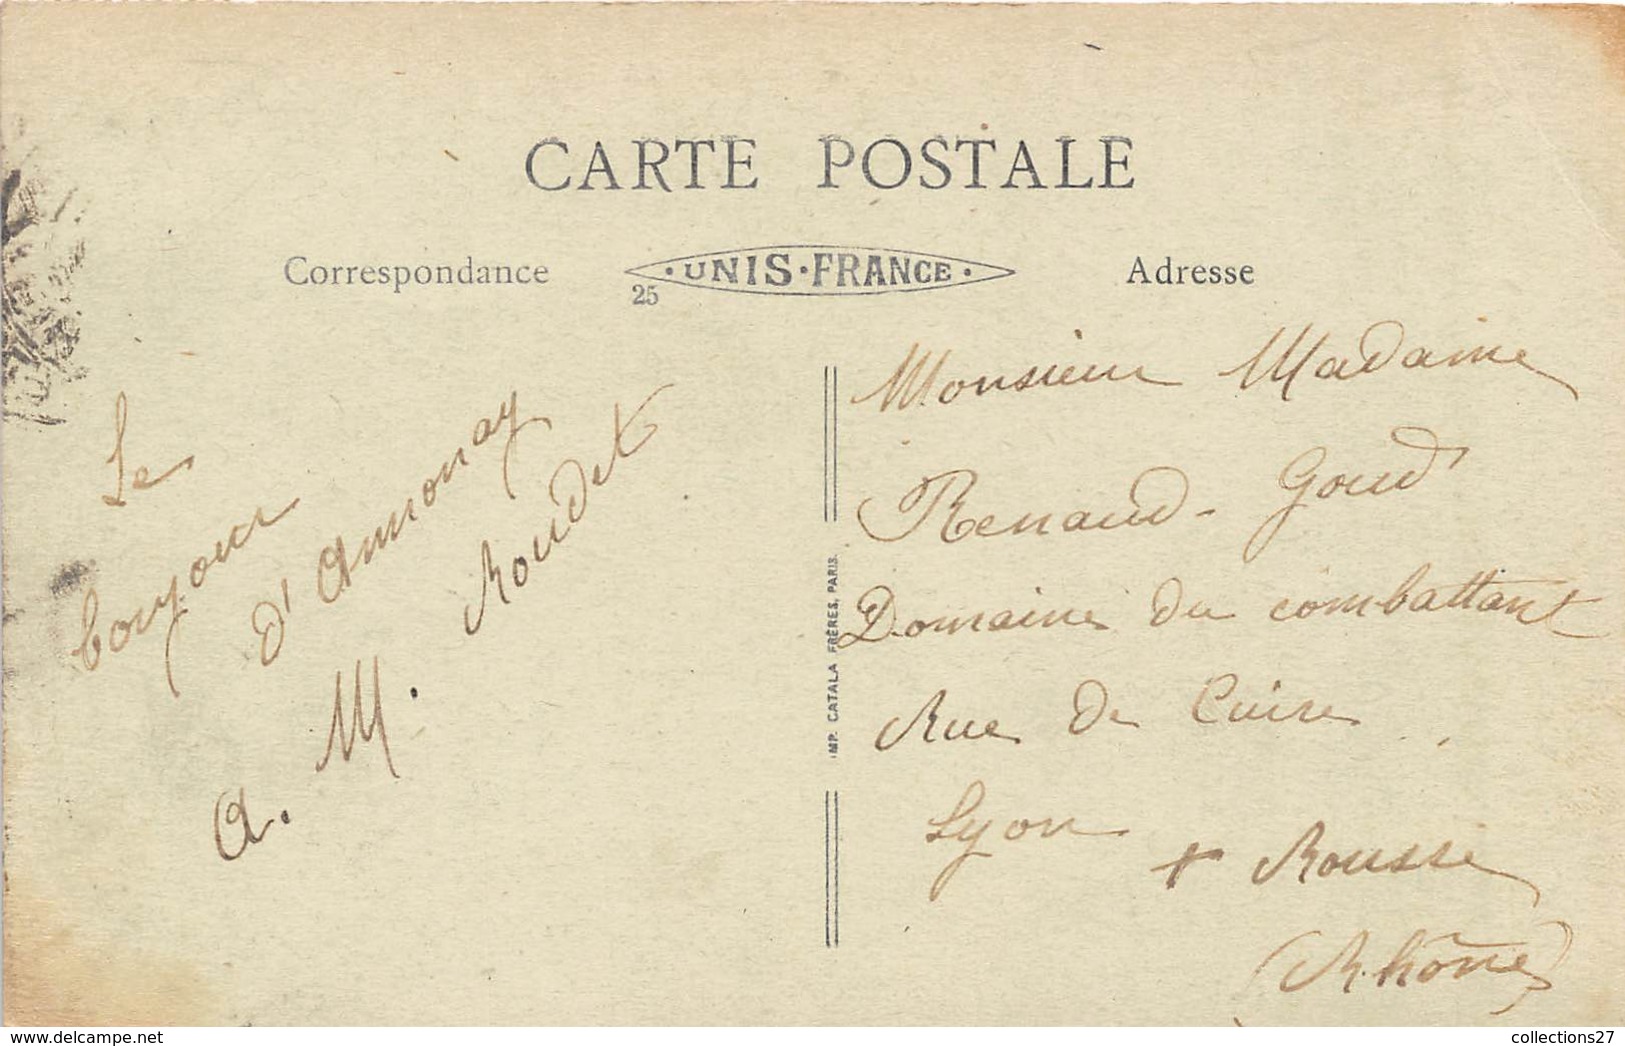 CARTE POSTALE
Correspondance
UNIS·FRANCE
25
Adresse
Le
bonjour
d'Annonay
A. M. Roudet
IMP. CATALA FRÈRES, PARIS
Monsieur Madame
Renaud-Goud
Domaine du combattant
Rue de Cuire
Lyon + Rousse
(Rhône)
collections27